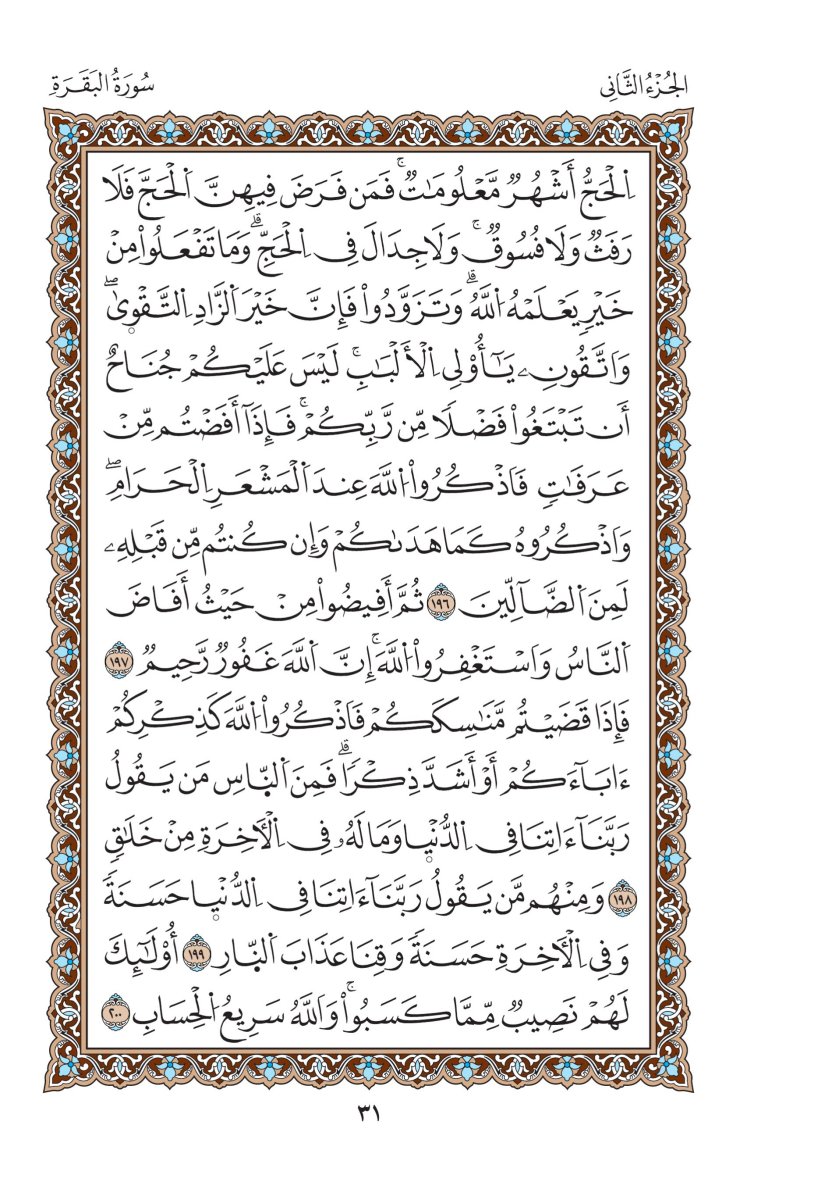 الجُزْءُ الثَّانِى
سُورَةُ البَقَرَةِ
اِ۬لْحَجُّ أَشْهُرٌ مَّعْلُومَٰتٌ ۚ فَمَن فَرَضَ فِيهِنَّ اَ۬لْحَجَّ فَلَا
رَفَثٌ وَلَا فُسُوقٌ ۚ وَلَا جِدَالَ فِى اِ۬لْحَجِّ ۗ وَمَا تَفْعَلُوا۟ مِنْ
خَيْرٍ يَعْلَمْهُ اُ۬للَّهُ ۗ وَتَزَوَّدُوا۟ فَإِنَّ خَيْرَ اَ۬لزَّادِ اِ۬لتَّقْو۪ىٰ ۖ
وَاتَّقُونِۦ يَٰٓأُو۟لِى اِ۬لْأَلْبَٰبِ ۚ لَيْسَ عَلَيْكُمْ جُنَاحٌ
أَن تَبْتَغُوا۟ فَضْلًا مِّن رَّبِّكُمْ ۚ فَإِذَآ أَفَضْتُم مِّنْ
عَرَفَٰتٍ فَاذْكُرُوا۟ اُ۬للَّهَ عِندَ اَ۬لْمَشْعَرِ اِ۬لْحَرَامِ ۖ
وَاذْكُرُوهُ كَمَا هَدَىٰكُمْ وَإِن كُنتُم مِّن قَبْلِهِۦ
لَمِنَ اَ۬لضَّآلِّينَ ١٩٦ ثُمَّ أَفِيضُوا۟ مِنْ حَيْثُ أَفَاضَ
اَ۬لنَّاسُ وَاسْتَغْفِرُوا۟ اُ۬للَّهَ ۚ إِنَّ اَ۬للَّهَ غَفُورٌ رَّحِيمٌ ١٩٧
فَإِذَا قَضَيْتُم مَّنَٰسِكَكُمْ فَاذْكُرُوا۟ اُ۬للَّهَ كَذِكْرِكُمْ
ءَابَآءَكُمْ أَوْ أَشَدَّ ذِكْرًا ۗ فَمِنَ اَ۬لنّ۪اسِ مَن يَقُولُ
رَبَّنَآ ءَاتِنَا فِى اِ۬لدُّنْي۪ا وَمَا لَهُۥ فِى اِ۬لْأٓخِرَةِ مِنْ خَلَٰقٍ
١٩٨ وَمِنْهُم مَّن يَقُولُ رَبَّنَآ ءَاتِنَا فِى اِ۬لدُّنْي۪ا حَسَنَةً
وَفِى اِ۬لْأٓخِرَةِ حَسَنَةً وَقِنَا عَذَابَ اَ۬لنّ۪ارِ ١٩٩ أُو۟لَٰٓئِكَ
لَهُمْ نَصِيبٌ مِّمَّا كَسَبُوا۟ ۚ وَاَللَّهُ سَرِيعُ اُ۬لْحِسَابِ ٢٠٠
٣١